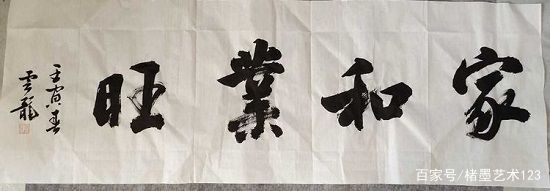 家和業旺
壬寅春
雲龍
百家号/楮墨艺术123